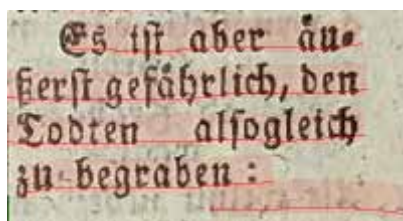 Es ist aber äu-
ßerst gefährlich, den
Todten alsogleich
zu begraben: